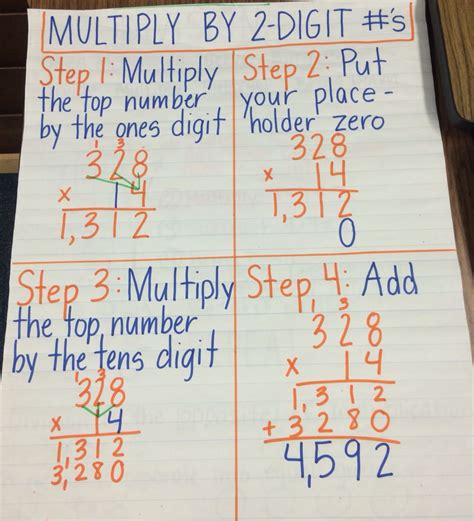 MULTIPLY BY 2-DIGIT #'s
Step 1: Multiply
the top number
by the ones digit
1 3
328
x 14
1,312
Step 2: Put
your place-
holder zero
328
x 14
1,312
0
Step 3: Multiply
the top number
by the tens digit
1 3
328
x 14
1,312
3,280
Step 4: Add
1 3
328
x 14
1,312
+ 3280
4,592